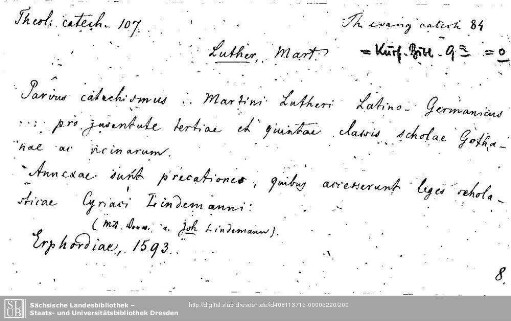 Theol. catech. 107.
Th evang catech 84
Luther, Mart.
= Kurf. Bibl.
Parvus catechismus .. Martini Lutheri Latino-Germanicus
... pro juventute tertiae et quintae classis scholae Gotha-
nae ac vicinarum.
Annexae sunt precationes, quibus accesserunt leges schola-
sticae Cyriaci Lindemanni:
(Mit Anm. v. Joh Lindemann).
Erphordiae, 1593.
8.
SLUB
Sächsische Landesbibliothek –
Staats- und Universitätsbibliothek Dresden